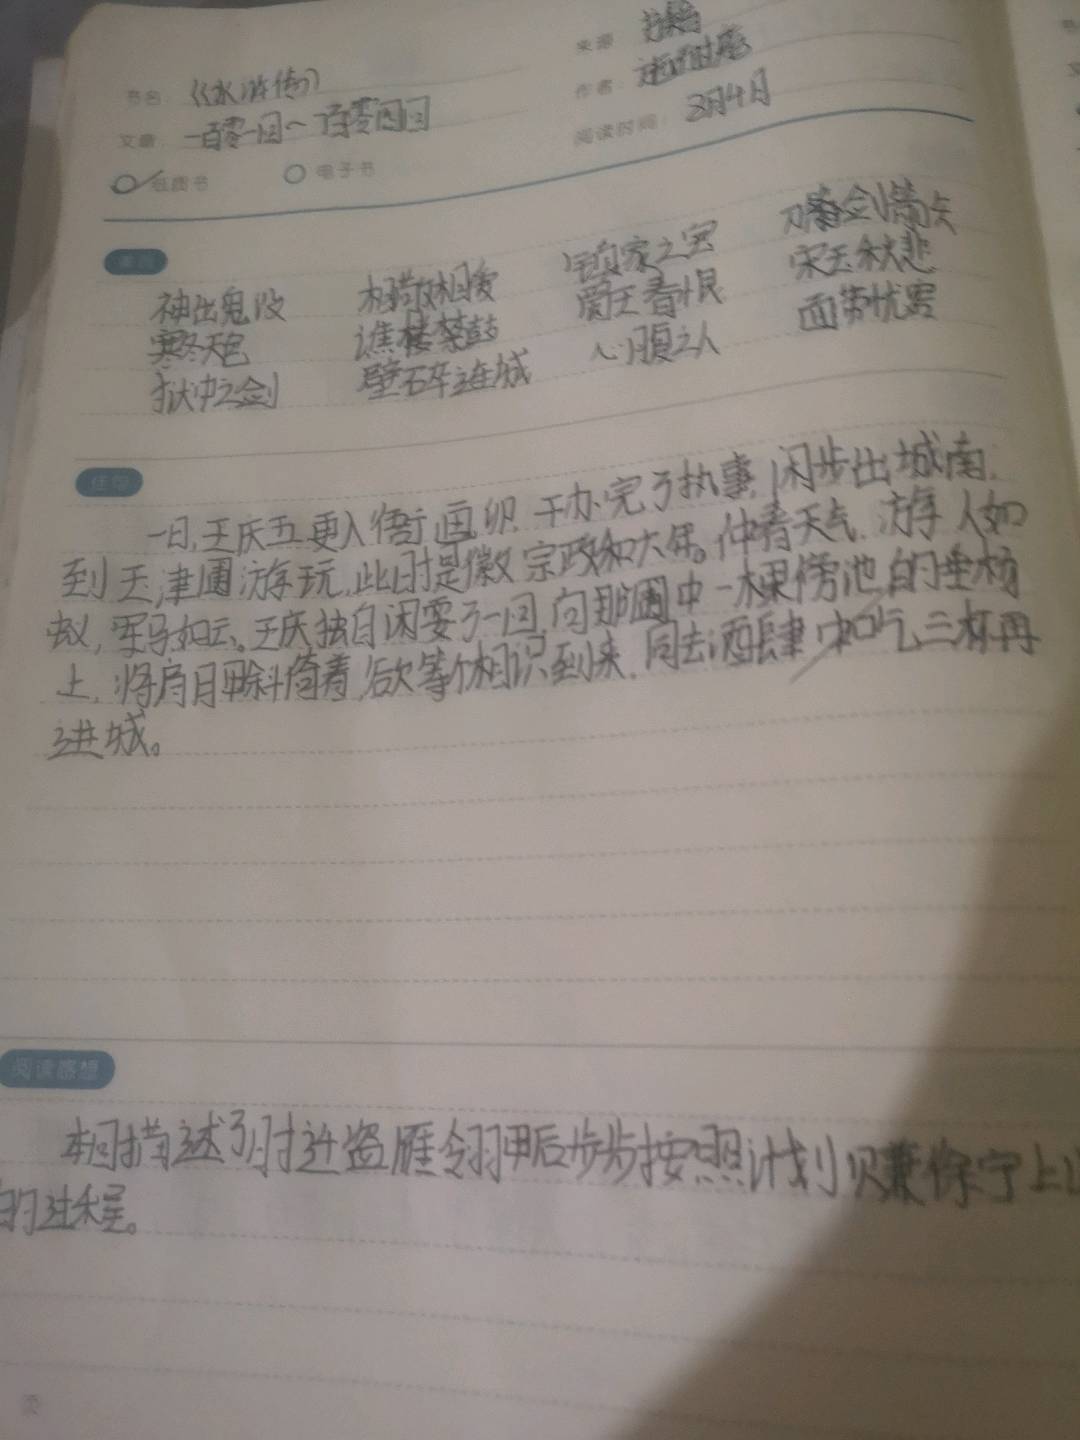 书名：《水浒传》
来源：书籍
作者：施耐庵
文章：一百零一回～一百零四回
阅读时间：3月4日
纸质书 电子书
神出鬼没 相敬相爱 镇家之宝
寒冬天色 谯楼禁鼓 宋玉秋悲
狱中之剑 心腹之人 面带忧容
佳句
一日，王庆五更入衙画卯，干办完了执事，闲步出城南，
到玉津圃游玩，此时是徽宗政和六年。仲春天气，游人如
蚁，军马如云。王庆独自闲耍了一回，向那圃中一棵傍池的垂杨
上，将肩胛斜倚着，欲等个相识到来，同去酒肆中吃三杯再
进城。
阅读感想
本回描述了时迁盗雁翎甲后步步按照计划赚徐宁上
的过程。
页